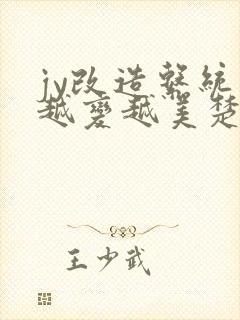 jy改造系統
越變越美楚
王少武